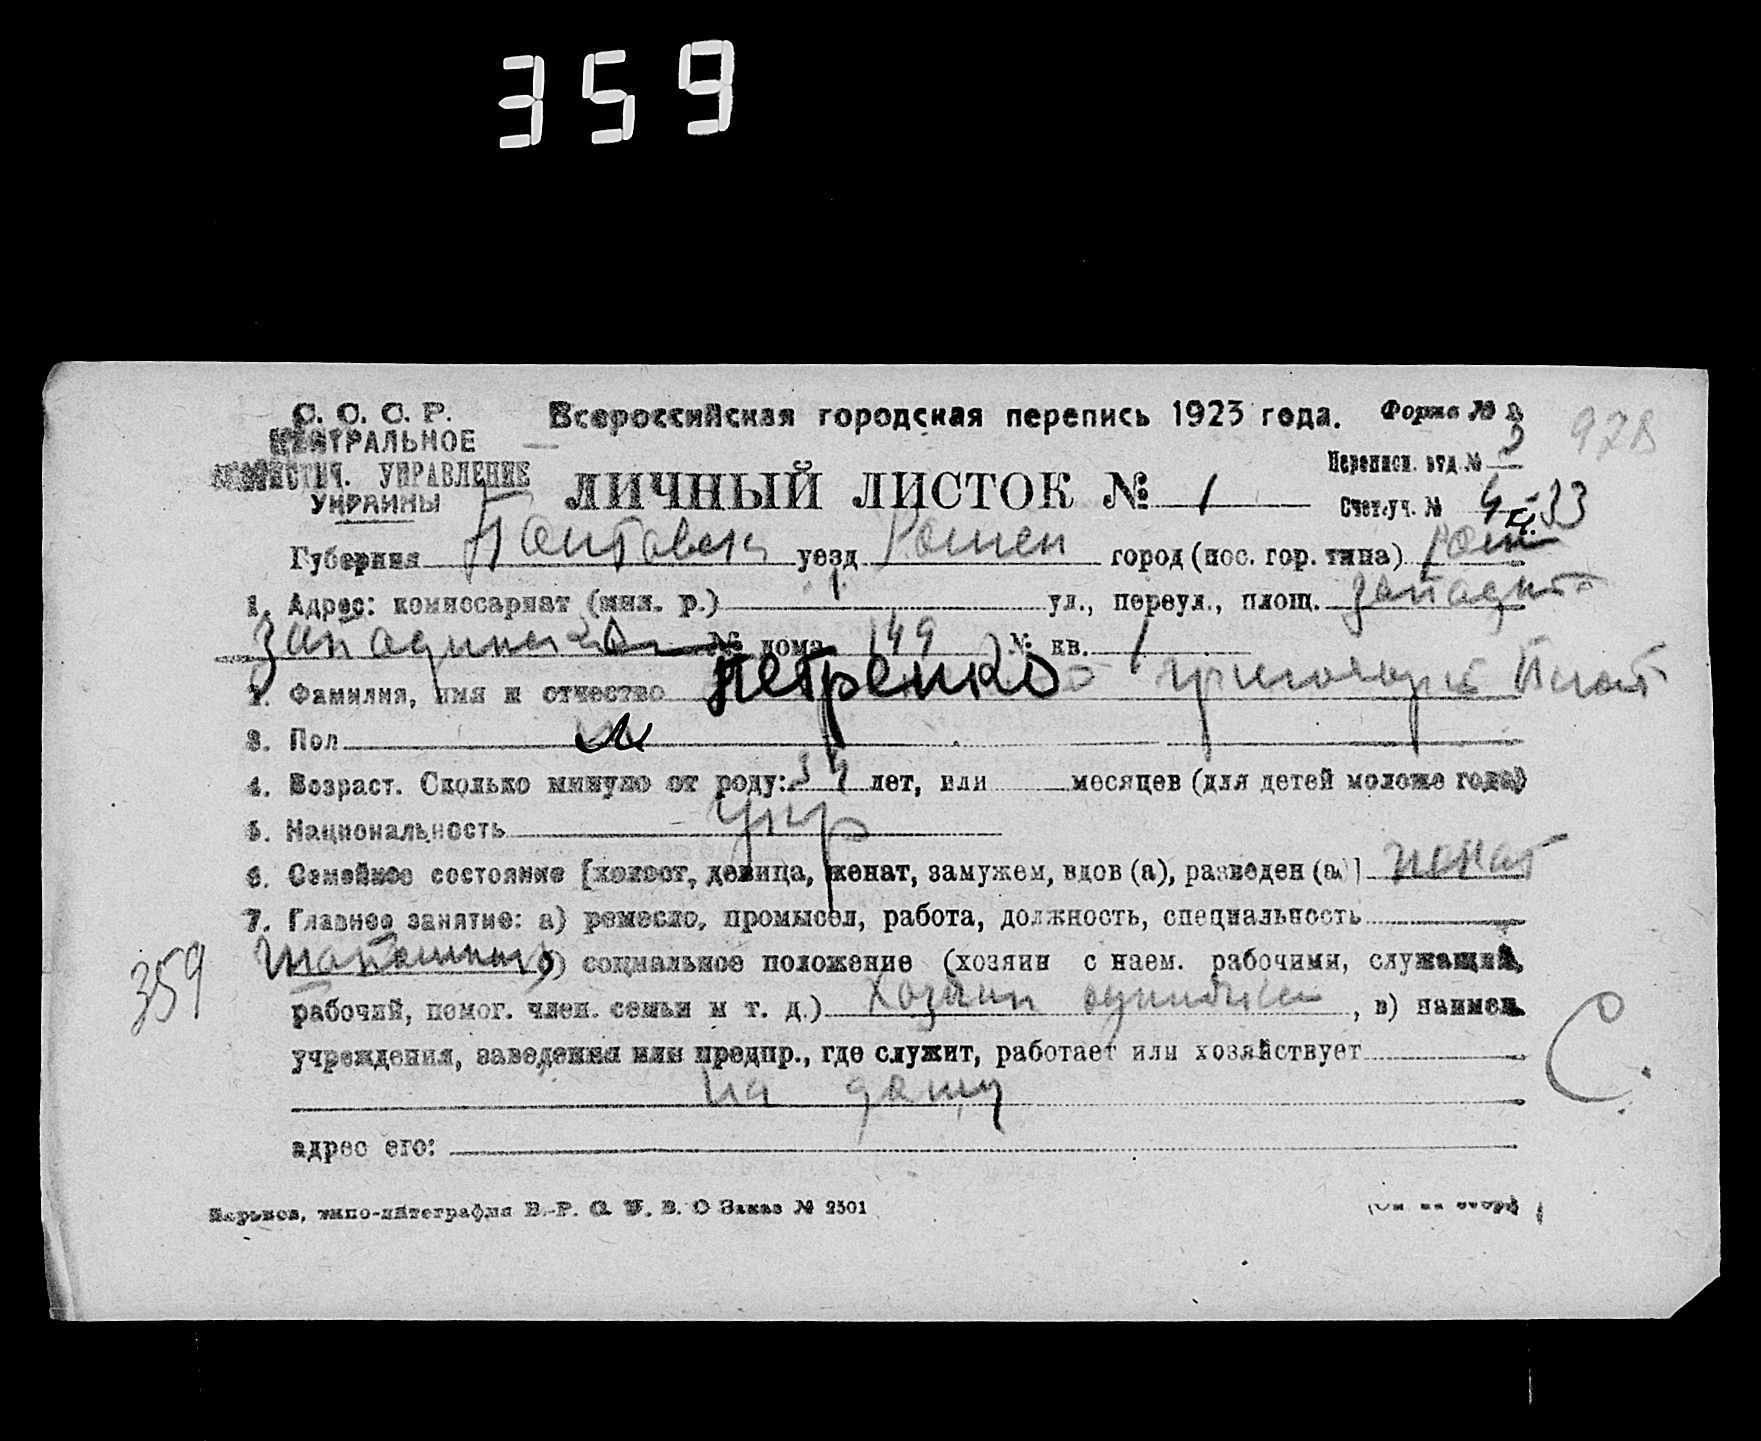 359
С. С. С. Р.
ЦЕНТРАЛЬНОЕ
СТАТИСТИЧ. УПРАВЛЕНИЕ
УКРАИНЫ
Всероссийская городская перепись 1923 года.
Форма № 2
978
ЛИЧНЫЙ ЛИСТОК № 1
Переписн. отд. № 3
Счет. уч. № 4-33
Губерния Полтавск уезд Ромен город (пос. гор. типа) Ром
1. Адрес: комиссариат (мил. р.) 1 ул., переул., площ.
№ дома 149 № кв. 1
2. Фамилия, имя и отчество Петренко
3. Пол м
4. Возраст. Сколько минуло от роду: 34 лет, или месяцев (для детей моложе года)
5. Национальность Укр
6. Семейное состояние [холост, девица, женат, замужем, вдов (а), разведен (а)] женат
7. Главное занятие: а) ремесло, промысел, работа, должность, специальность
б) социальное положение (хозяин с наем. рабочими, служащий,
рабочий, помог. член. семьи и т. д.) Хозяин одиночка, в) наимен.
учреждения, заведения или предпр., где служит, работает или хозяйствует
на дому
адрес его:
359
С.
Харьков, типо-литография В.-Р. С. У. В. О Заказ № 2501